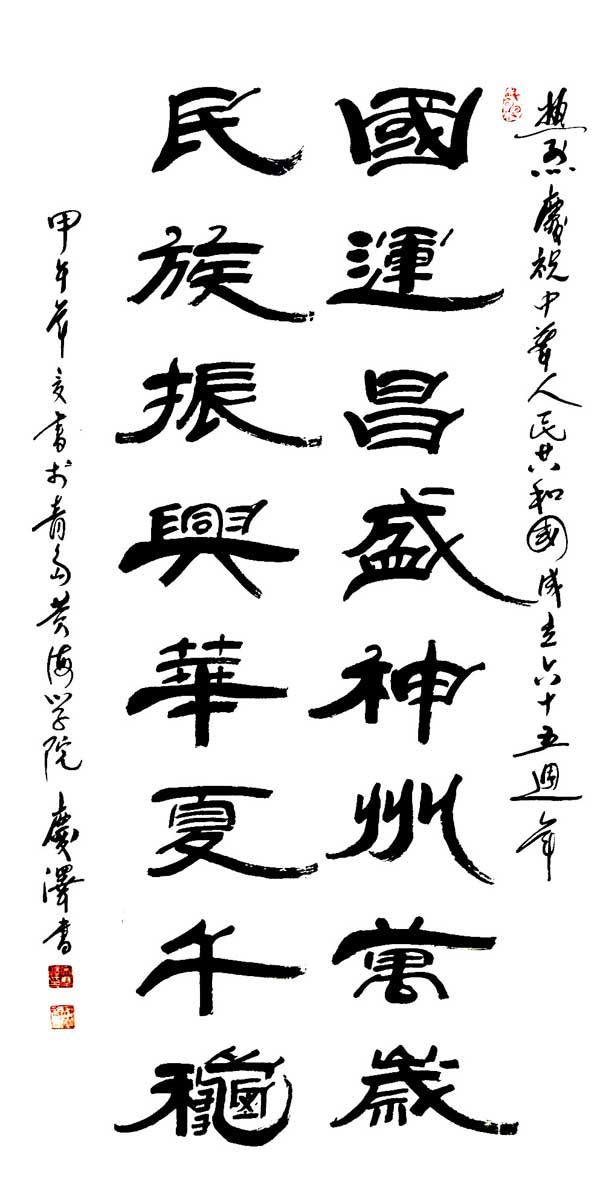 熱烈慶祝中華人民共和國成立六十五週年
國運昌盛神州萬歲
民族振興華夏千龝
甲午年夏書於青島黄海学院 慶澤書